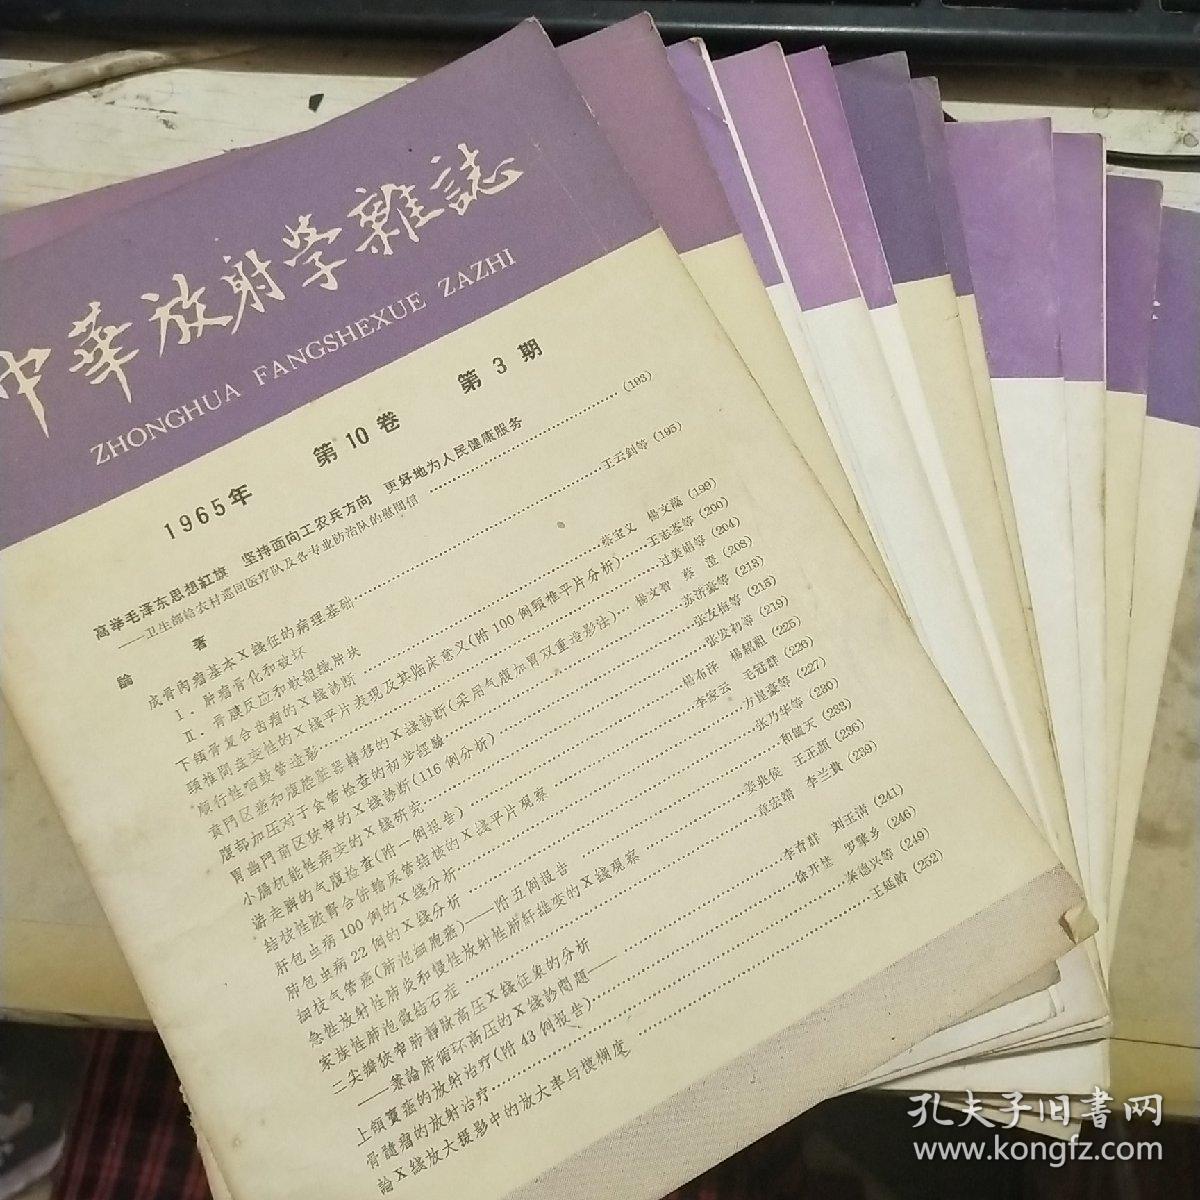 中華放射学雜誌
ZHONGHUA FANGSHEXUE ZAZHI
1965年 第10卷 第3期
高举毛泽东思想紅旗 坚持面向工农兵方向 更好地为人民健康服务
——卫生部給农村巡回医疗队及各专业防治队的慰問信 (193)
論 著
成骨肉瘤基本X线征的病理基础 王云釗等 (195)
I．肿瘤骨化和破坏
II．骨膜反应和軟組織肿块
下頜骨复合齿瘤的X线診断 蔡宝义 楊文蕴 (199)
頸椎間盘变性的X线平片表现及其临床意义(附100例頸椎平片分析) 王志荃等 (200)
順行性咽鼓管造影 过美娟等 (204)
賁門区癌和腹腔脏器轉移的X线診断(采用气腹加胃双重造影法) 楊文智 蔡 澄 (208)
腹部加压对于食管检查的初步經驗 苏济豪等 (213)
胃幽門前区狹窄的X线診断(116例分析) 张友梅等 (215)
小腸机能性病变的X线研究 张发初等 (219)
游走脾的气腹检查(附一例报告) 楊右泽 楊紹組 (225)
結核性脓腎合併輸尿管結核的X线平片观察 李家云 毛冠群 (226)
肝包虫病100例的X线分析 方昆豪等 (227)
肺包虫病22例的X线分析 张乃华等 (230)
細枝气管癌(肺泡細胞癌)——附五例报告 和儀天 (233)
急性放射性肺炎和慢性放射性肺紆維变的X线观察 姜兆侯 王正顏 (236)
家族性肺泡微結石症 章宏靖 李兰貴 (239)
二尖瓣狹窄肺靜脉高压X线征象的分析
——兼論肺循环高压的X线診問題—— 李杏群 刘玉淸 (241)
上頜竇癌的放射治疗(附43例报告) 徐开埜 罗擎乡 (246)
骨髓瘤的放射治疗 秦德兴等 (249)
論X线放大摄影中的放大率与模糊度 王延齡 (252)
孔夫子旧書网
www.kongfz.com